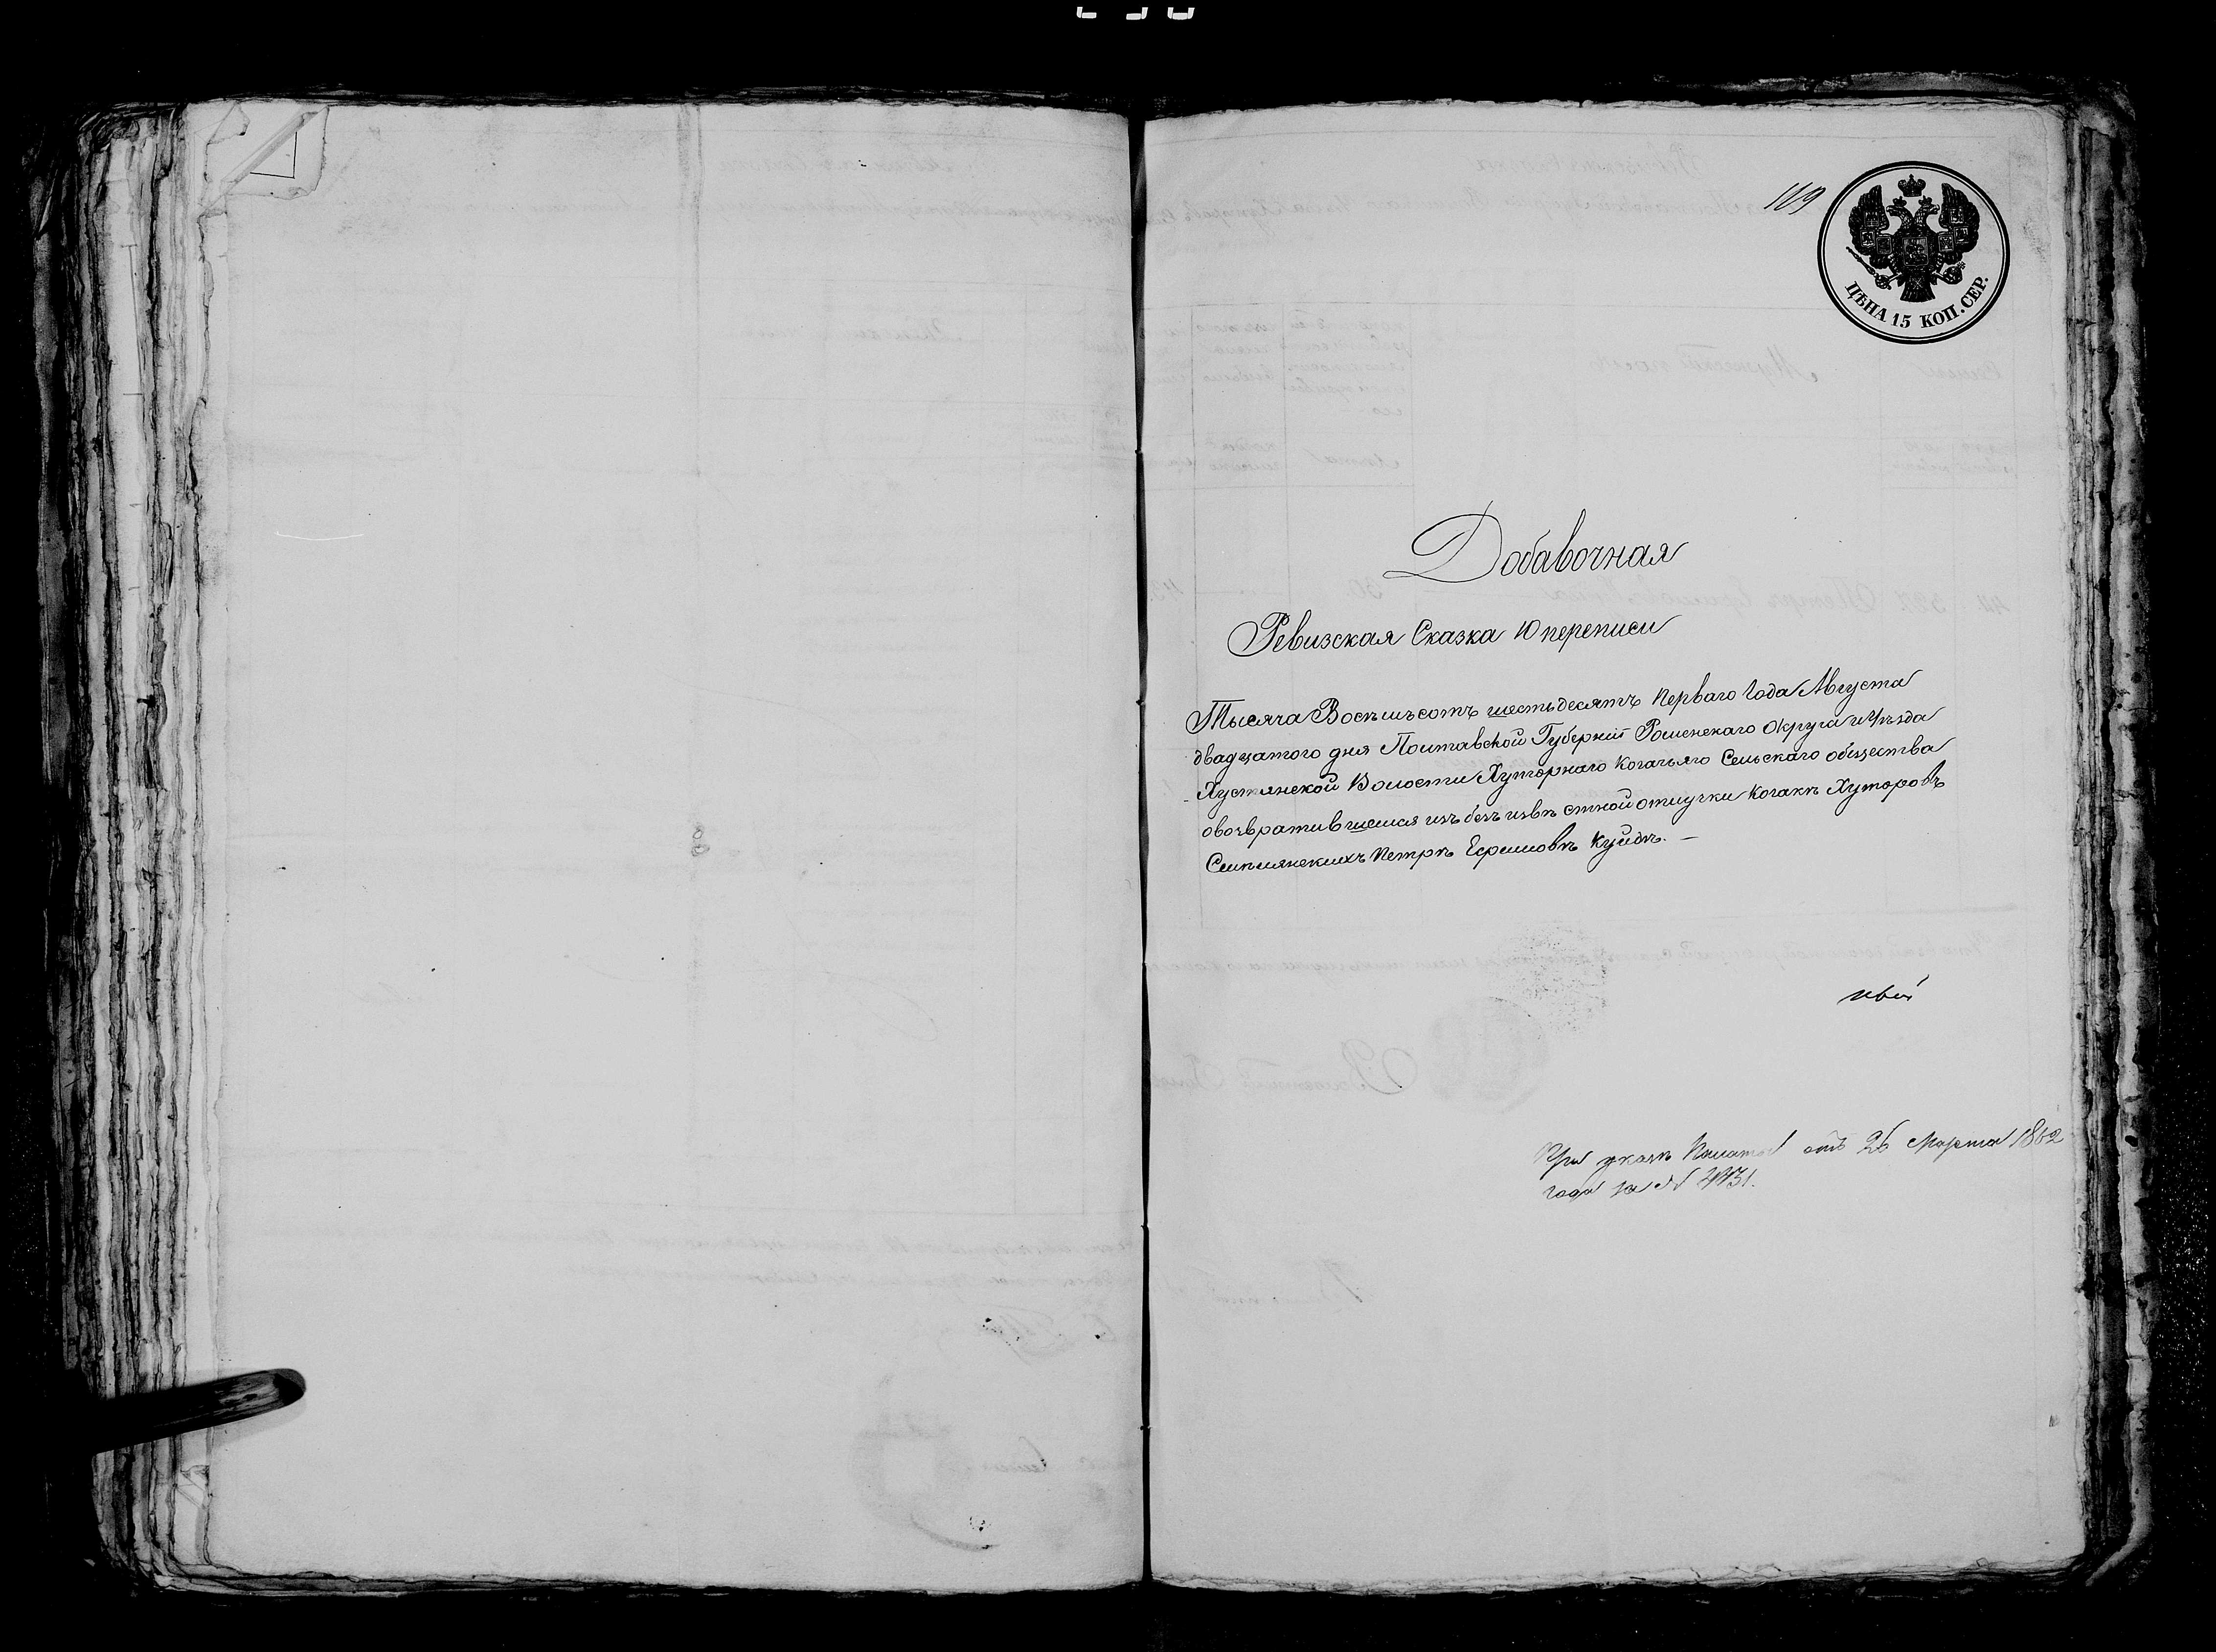 119
ЦѢНА 15 КОП. СЕР.
Добавочная
Ревизская Сказка 10 переписи
Тысяча Восѣмьсотъ шестьдесятъ перваго Года Августа
двадцатого дня Полтавской Губерніи Роменскаго Округа и Уѣзда
Хустянской Волости Хуторнаго Козачьяго Сельскаго общества
овозвратившемся изъ безъ извѣстной отлучки Козакѣ Хуторовъ
Петрѣ Ефимовѣ
При указѣ Палаты отъ 26 Марта 1862
года за №